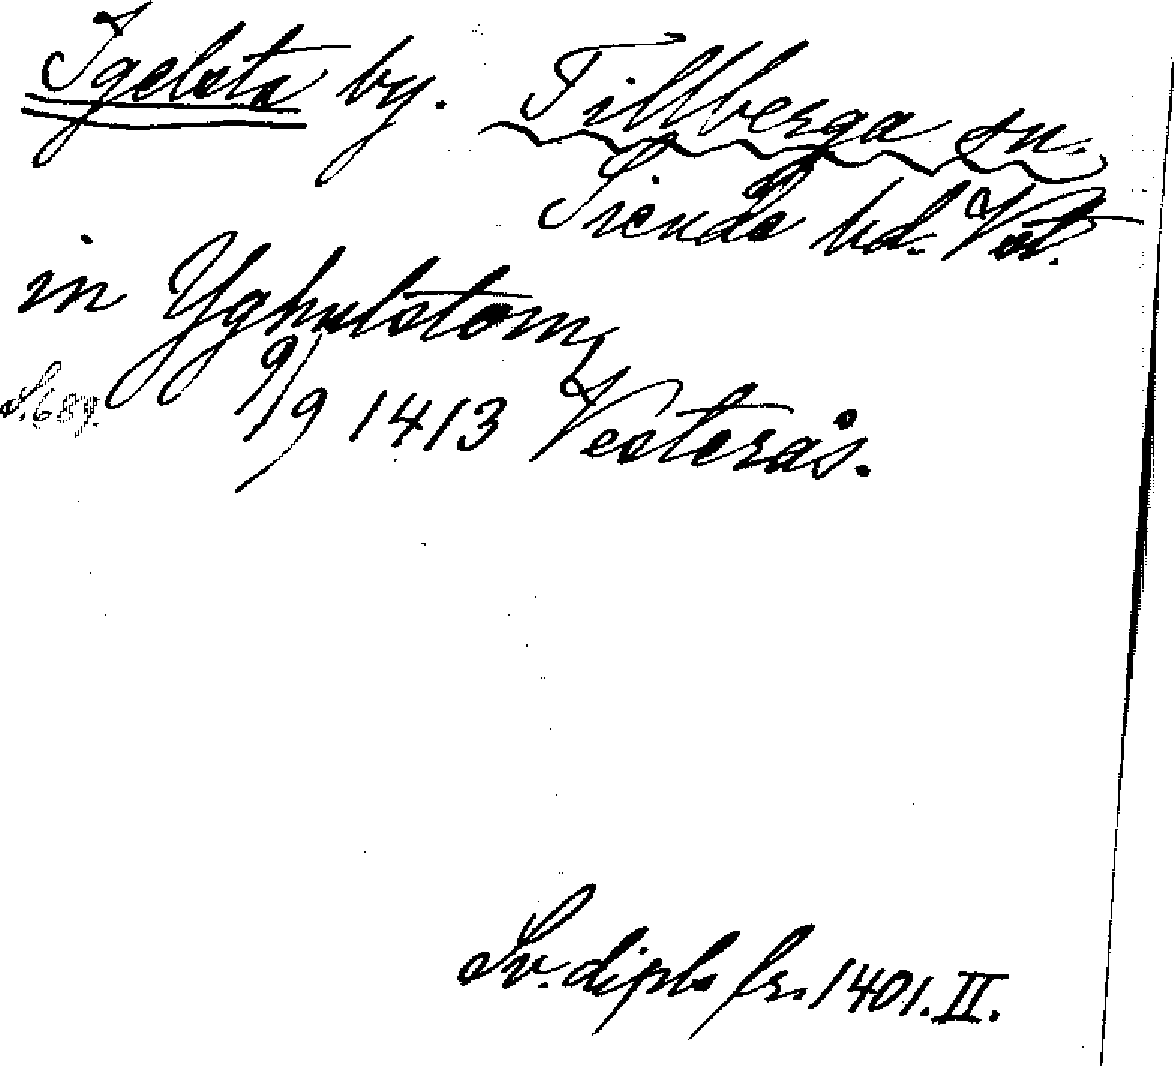 Igelsta by. Tillberga sn.
Siende hd. Vstl.
in Yghulstom,
S. 689. 9/9 1413 Vesterås.
Sv. dipl. fr. 1401. II.